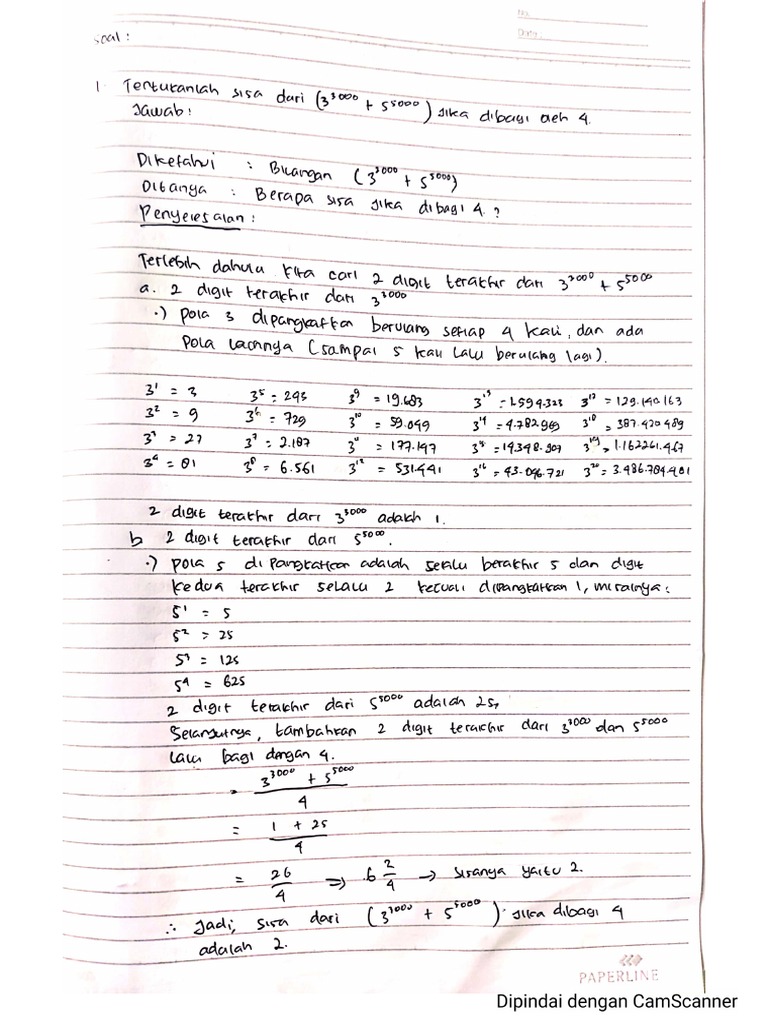 No.
Date:
Soal :
1. Tentukanlah sisa dari (3³⁰⁰⁰ + 5⁵⁰⁰⁰) jika dibagi oleh 4.
Jawab :
Diketahui : Bilangan (3³⁰⁰⁰ + 5⁵⁰⁰⁰)
Ditanya : Berapa sisa jika dibagi 4 ?
Penyelesaian :
Terlebih dahulu kita cari 2 digit terakhir dari 3³⁰⁰⁰ + 5⁵⁰⁰⁰
a. 2 digit terakhir dari 3³⁰⁰⁰
•) pola 3 dipangkatkan berulang setiap 4 kali, dan ada
pola lainnya (sampai 5 kali lalu berulang lagi).
3¹ = 3 3⁵ = 243 3⁹ = 19.683 3¹³ = 1.594.323 3¹⁷ = 129.140.163
3² = 9 3⁶ = 729 3¹⁰ = 59.049 3¹⁴ = 4.782.969 3¹⁸ = 387.420.489
3³ = 27 3⁷ = 2.187 3¹¹ = 177.147 3¹⁵ = 14.348.907 3¹⁹ = 1.162261.467
3⁴ = 81 3⁸ = 6.561 3¹² = 531.441 3¹⁶ = 43.046.721 3²⁰ = 3.486.784.401
2 digit terakhir dari 3³⁰⁰⁰ adalah 1.
b 2 digit terakhir dari 5⁵⁰⁰⁰.
•) pola 5 dipangkatkan adalah selalu berakhir 5 dan digit
kedua terakhir selalu 2 kecuali dipangkatkan 1, misalnya :
5¹ = 5
5² = 25
5³ = 125
5⁴ = 625
2 digit terakhir dari 5⁵⁰⁰⁰ adalah 25,
Selanjutnya, tambahkan 2 digit terakhir dari 3³⁰⁰⁰ dan 5⁵⁰⁰⁰
lalu bagi dengan 4.
= 3³⁰⁰⁰ + 5⁵⁰⁰⁰
4
= 1 + 25
4
= 26/4 ⇒ 6 2/4 → sisanya yaitu 2.
∴ Jadi, sisa dari (3³⁰⁰⁰ + 5⁵⁰⁰⁰) jika dibagi 4
adalah 2.
PAPERLINE
Dipindai dengan CamScanner